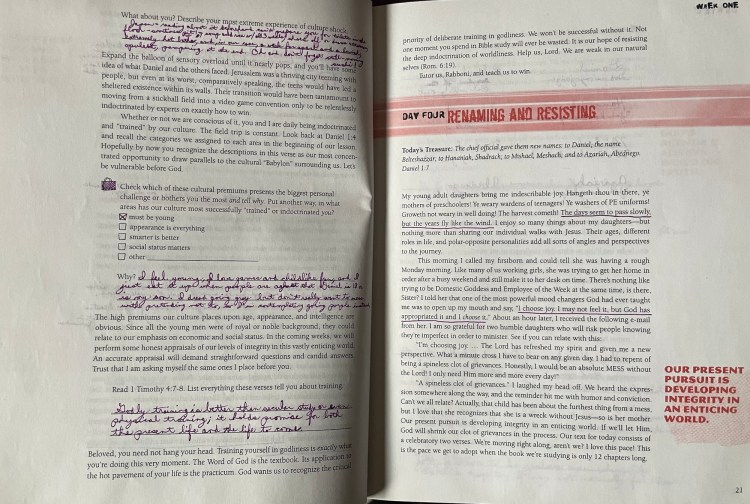 What about you? Describe your most extreme experience of culture shock.
Expand the balloon of sensory overload until it nearly pops, and you'll have some
idea of what Daniel and the others faced. Jerusalem was a thriving city teeming with
people, but even at its worst, comparatively speaking, the teens would have led a
sheltered existence within its walls. Their transition would have been tantamount to
moving from a stickball field into a video game convention only to be relentlessly
indoctrinated by experts on exactly how to win.
Whether or not we are conscious of it, you and I are daily being indoctrinated
and "trained" by our culture. The field trip is constant. Look back at Daniel 1:4
and recall the categories we assigned to each area in the beginning of our lesson.
Hopefully by now you recognize the descriptions in this verse as our most concen-
trated opportunity to draw parallels to the cultural "Babylon" surrounding us. Let's
be vulnerable before God.
Check which of these cultural premiums presents the biggest personal
challenge or bothers you the most and tell why. Put another way, in what
areas has our culture most successfully "trained" or indoctrinated you?
must be young
appearance is everything
smarter is better
social status matters
other
Why? I feel young, I love games and childlike fun, and I
The high premiums our culture places upon age, appearance, and intelligence are
obvious. Since all the young men were of royal or noble background, they could
relate to our emphasis on economic and social status. In the coming weeks, we will
perform some honest appraisals of our levels of integrity in this vastly enticing world.
An accurate appraisal will demand straightforward questions and candid answers.
Trust that I am asking myself the same ones I place before you.
Read 1 Timothy 4:7-8. List everything these verses tell you about training
Godly training is better than secular study or even
physical training; it holds promise for both
the present life and the life to come.
Beloved, you need not hang your head. Training yourself in godliness is exactly what
you're doing this very moment. The Word of God is the textbook. Its application on
the hot pavement of your life is the practicum. God wants us to recognize the critical
WEEK ONE
priority of deliberate training in godliness. We won't be successful without it. Not
one moment you spend in Bible study will ever be wasted. It is our hope of resisting
the deep indoctrination of worldliness. Help us, Lord. We are weak in our natural
selves (Rom. 6:19).
Tutor us, Rabboni, and teach us to win.
DAY FOUR RENAMING AND RESISTING
Today's Treasure: The chief official gave them new names: to Daniel, the name
Belteshazzar; to Hananiah, Shadrach; to Mishael, Meshach; and to Azariah, Abednego.
Daniel 1:7
My young adult daughters bring me indescribable joy. Hangeth thou in there, ye
mothers of preschoolers! Ye weary wardens of teenagers! Ye washers of PE uniforms!
Groweth not weary in well doing! The harvest cometh! The days seem to pass slowly,
but the years fly like the wind. I enjoy so many things about my daughters—but
nothing more than sharing our individual walks with Jesus. Their ages, different
roles in life, and polar-opposite personalities add all sorts of angles and perspectives
to the journey.
This morning I called my firstborn and could tell she was having a rough
Monday morning. Like many of us working girls, she was trying to get her home in
order after a busy weekend and still make it to her desk on time. There's nothing like
trying to be Domestic Goddess and Employee of the Week at the same time, is there,
Sister? I told her that one of the most powerful mood changers God had ever taught
me was to open up my mouth and say, "I choose joy. I may not feel it, but God has
appropriated it and I chose it." About an hour later, I received the following e-mail
from her. I am so grateful for two humble daughters who will risk people knowing
they're imperfect in order to minister. See if you can relate with this:
"I'm choosing joy. ... The Lord has refreshed my spirit and given me a new
perspective. What a minute cross I have to bear on any given day. I had to repent of
being a spineless clot of grievances. Honestly, I would be an absolute MESS without
the Lord! I only need Him more and more every day!"
"A spineless clot of grievances." I laughed my head off. We heard the expres-
sion somewhere along the way, and the reminder hit me with humor and conviction.
Can't we all relate? Actually, that child has been about the furthest thing from a mess,
but I love that she recognizes that she is a wreck without Jesus—so is her mother.
Our present pursuit is developing integrity in an enticing world. If we'll let Him,
God will shrink our clot of grievances in the process. Our text for today consists of
a celebratory two verses. We're moving right along, aren't we? I love this pace! This
is the pace we get to adopt when the book we're studying is only 12 chapters long.
OUR PRESENT
PURSUIT IS
DEVELOPING
INTEGRITY IN
AN ENTICING
WORLD.
21